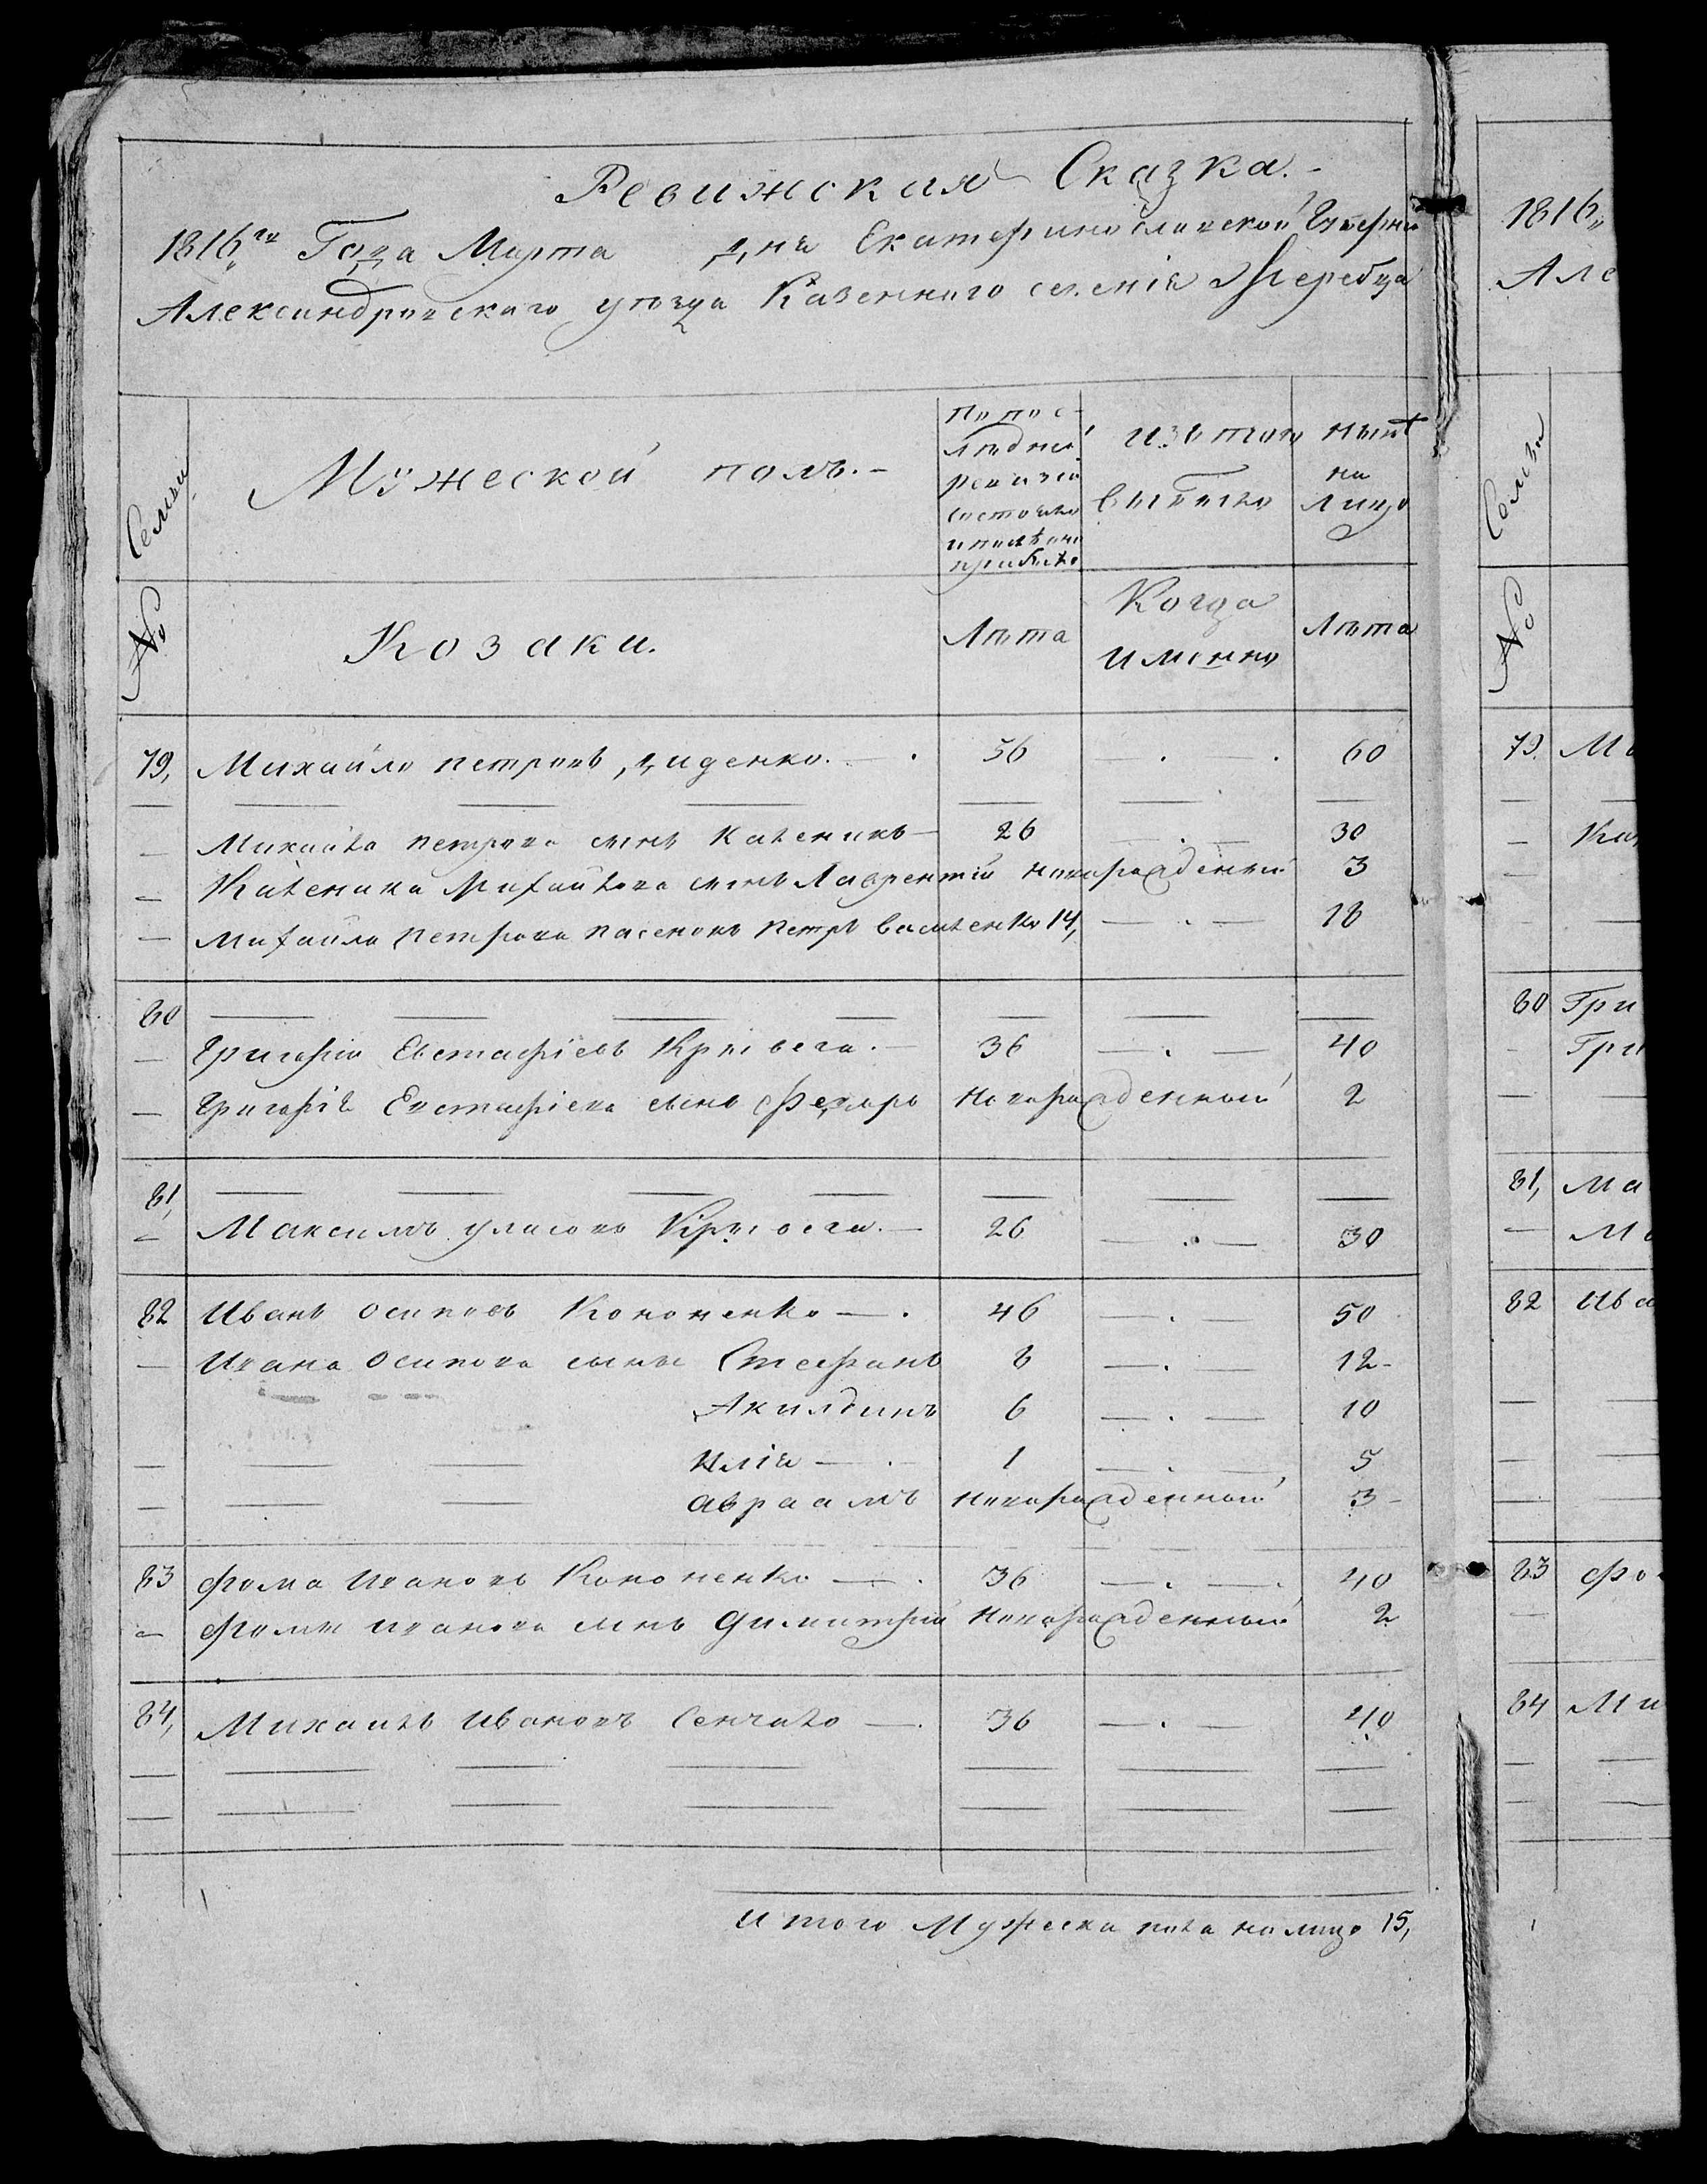 Ревижская Сказка.
1816го Года Марта дня Екатеринославской Губерніи
Александровского уъзда Казенного селенія Жеребца
№ Семьи
Мужеской полъ.
По пос-
лѣдней
ревизіи
состояло
и после того
прибыло
изъ того
выбыло
нынѣ
на
лицо
Козаки.
Лѣта
Когда
именно
Лѣта
79, Михайло петровъ диденко. — 56 — 60
— Михайла петрова сынъ Каленикъ — 26 — 30
— Каленика Михайлова сынъ Лаврентій новорожденный 3
— Михайла Петрова пасенокъ Петръ Василенко 14, — 18
80
— Григорій Евстафіевъ Кривега. — 36 — 40
— Григорія Евстафіева сынъ Федоръ новорожденный 2
81,
— Максимъ уласовъ — 26 — 30
82 Иванъ осиповъ Кононенко — 46 — 50
— Ивана осипова сыны Стефанъ 8 — 12
Акилдинъ 6 — 10
— Илія — 1 — 5
— авраамъ новорожденный 3
83 фома Ивановъ Кононенко — 36 — 40
— фомы иванова сынъ Димитрій новорожденный 2
84, Михаилъ Ивановъ Сенчало — 36 — 40
Итого Мужеска пола налицо 15,
1816
Але
№ Семьи
79. Ма
80 Гри
Гри
81, Ма
82 Ива
83 фо
84 Ми